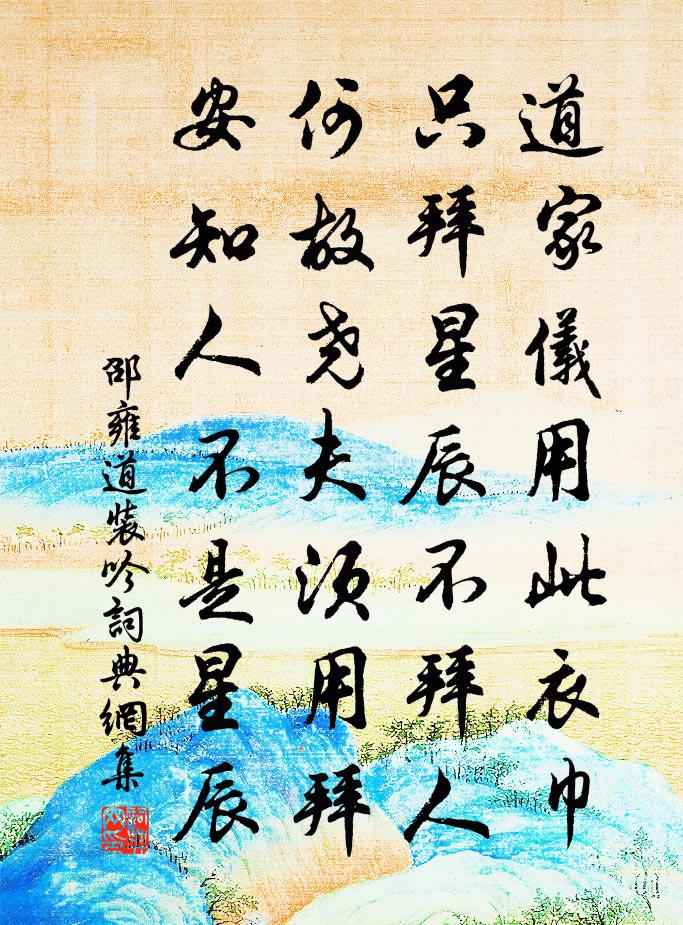 道家儀用此衣巾
只拜星辰不拜人
何故尧夫须用拜
安知人不是星辰
邵雍道装吟詞典網集